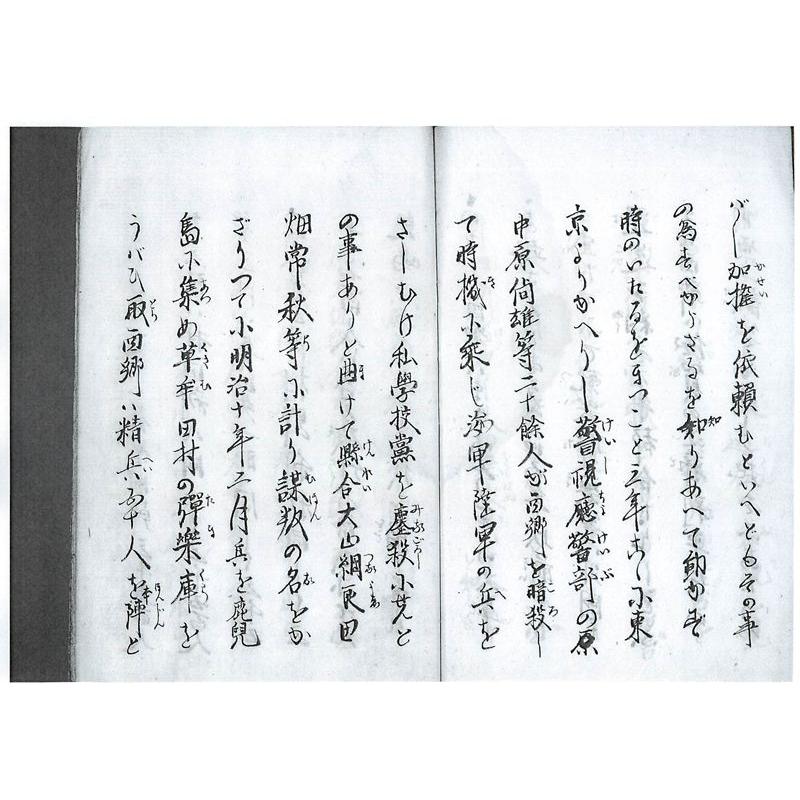 バし加擔を依頼むといへどもその事
の爲すべからざるを知りあへて動かず
時のいたるをまつこと三年こゝに東
京よりかへりし警視廳警部の原
中原尚雄等二十餘人が西郷を暗殺し
て時機に乗じ海軍陸軍の兵を
さしむけ私學校黨を鏖殺にせんと
の事ありと曲けて縣令大山綱良田
畑常秋等に計り謀叛の名をか
ざりつて小明治十年二月兵を鹿兒
島に集め草牟田村の彈藥庫を
うばひ取西郷ハ精兵五十人を陣と